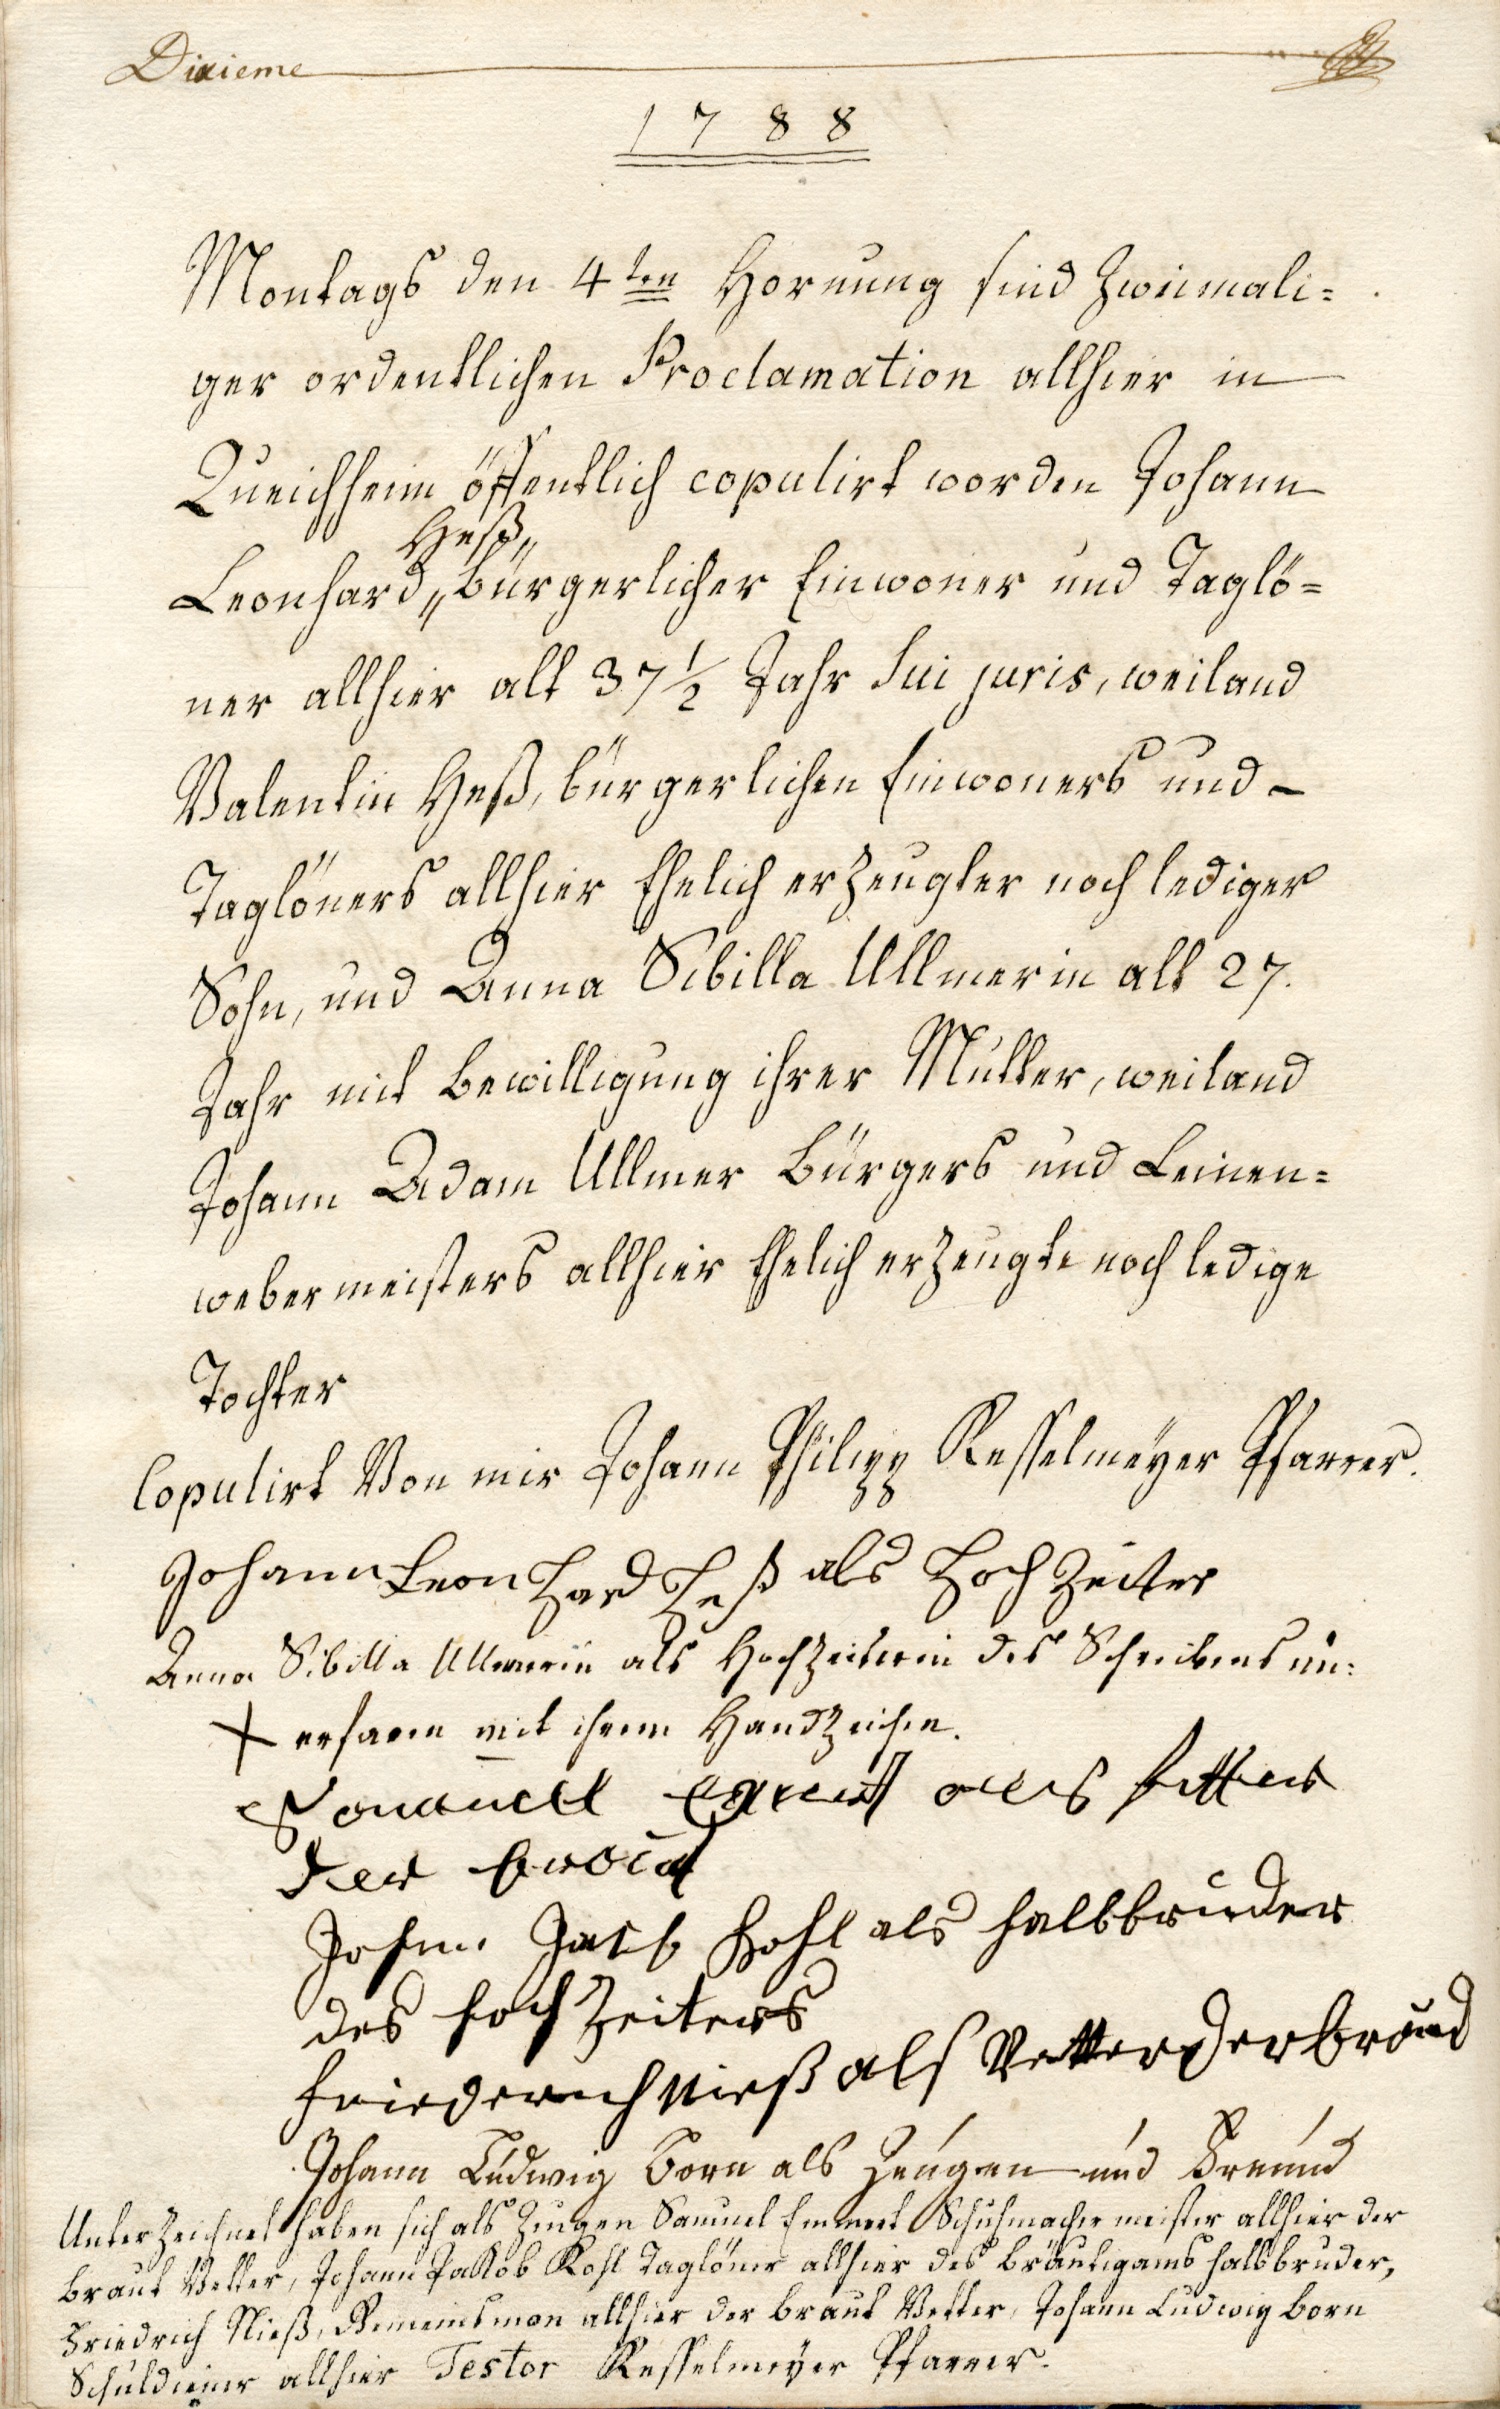 Dixieme
1788
Montags den 4ten Hornung sind zweimali=
ger ordentlichen Proclamation allhier in
Queichheim öffentlich copulirt worden Johann
Heß„
Leonhard„ bürgerlicher Einwoner und Taglö=
ner allhier alt 37 1/2 Jahr sui juris, weiland
Valentin Heß, bürgerlichen Einwoners und –
Taglöners allhier Ehelich erzeugter noch lediger
Sohn, und Anna Sibilla Ullmerin alt 27.
Jahr mit Bewilligung ihrer Mutter, weiland
Johann Adam Ullmer Bürgers und Leinen=
webermeisters allhier Ehelich erzeugte noch ledige
Tochter
Copulirt Von mir Johann Philipp Kesselmeÿer Pfarrer.
Johann Leonhard Heß als Hochzeiter
Anna Sibilla Ullmerin als Hochzeiterin des Schreibens un:
+ erfaren mit ihrem Handzeichen.
Samuell als fetter
der braud
Johann Jacob Kohl als halbbruder
des hochzeiters
friederich Nieß als Vetter der braud
Johann Ludwig Born als Zeugen und Freund
Unterzeichnet haben sich als Zeugen Samuel Emmert Schuhmacher meister allhier der
Braut Vetter, Johann Jakob Kohl Taglöner allhier des Bräutigams halbbruder,
Friedrich Nieß, Gemeindsman allhier der Braut Vetter, Johann Ludwig Born
Schuldiener allhier Testor Kesselmeÿer Pfarrer.